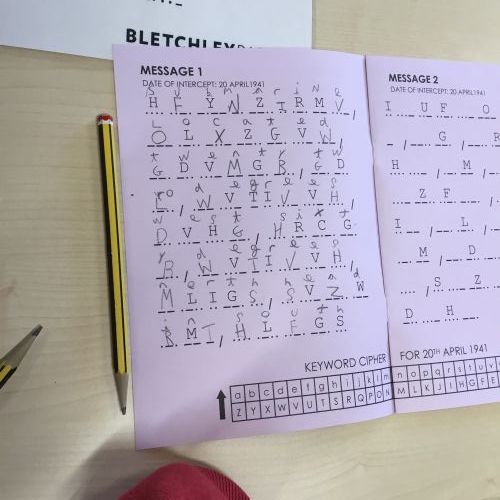 BLETCHLEY
MESSAGE 1
DATE OF INTERCEPT: 20 APRIL1941
s u b m a r i n e
H F Y N Z I R M V ,
L o c a t e d
O L X Z G V W ,
t w e n t y t w
G D V M G R / G D
d e g r e e s
/ W V T I V V H ,
w e s t s i x t
D V H G / H R C G
y d e g r e e s
R / W V T I V V H ,
r t h h e
M L I G S , S V Z W
n s o u t h
R M T / H L F G S
KEYWORD CIPHER
a b c d e f g h i j k l m
Z Y X W V U T S R Q P O N
MESSAGE 2
DATE OF INTERCEPT: 20 APRIL 1941
I U F O
/ G / R
H / M /
Z F
I / L /
M / D
/ S Z
D H
FOR 20TH APRIL 1941
n o p q r s t u v
M L K J I H G F E